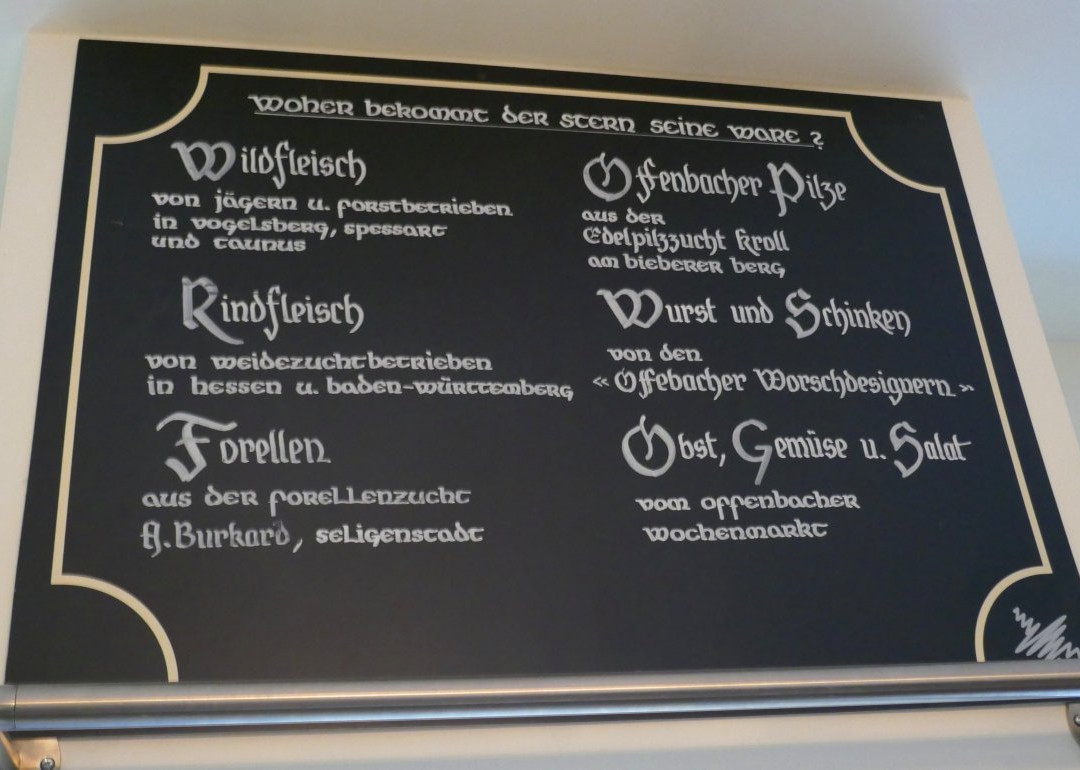 Woher bekommt der Stern seine Ware ?
Wildfleisch
von Jägern u. Forstbetrieben
in Vogelsberg, Spessart
und Taunus
Rindfleisch
von Weidezuchtbetrieben
in Hessen u. Baden-Württemberg
Forellen
aus der Forellenzucht
A. Burkard, Seligenstadt
Offenbacher Pilze
aus der
Edelpilzzucht Kroll
am Bieberer Berg
Wurst und Schinken
von den
« Offebacher Worschdesignern »
Obst, Gemüse u. Salat
vom Offenbacher
Wochenmarkt